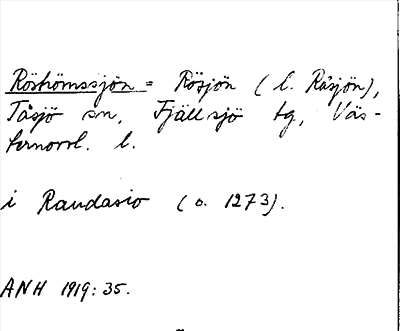 Röströmssjön = Rösjön (l. Råsjön),
Tåsjö sn, Fjällsjö tg, Väs-
ternorrl. l.
i Raudasio (o. 1273).
ANH 1919: 35.